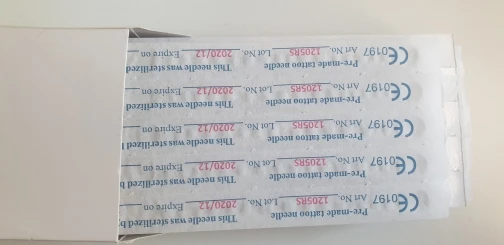 Pre-made tattoo needle This needle was sterilized b
CE0197 Art No. 1205RS Lot No. 2020/12 Expire on
Pre-made tattoo needle This needle was sterilized b
CE0197 Art No. 1205RS Lot No. 2020/12 Expire on
Pre-made tattoo needle This needle was sterilized
CE0197 Art No. 1205RS Lot No. 2020/12 Expire on
Pre-made tattoo needle This needle was sterilized
CE0197 Art No. 1205RS Lot No. 2020/12 Expire on
Pre-made tattoo needle This needle was sterilized
CE0197 Art No. 1205RS Lot No. 2020/12 Expire on